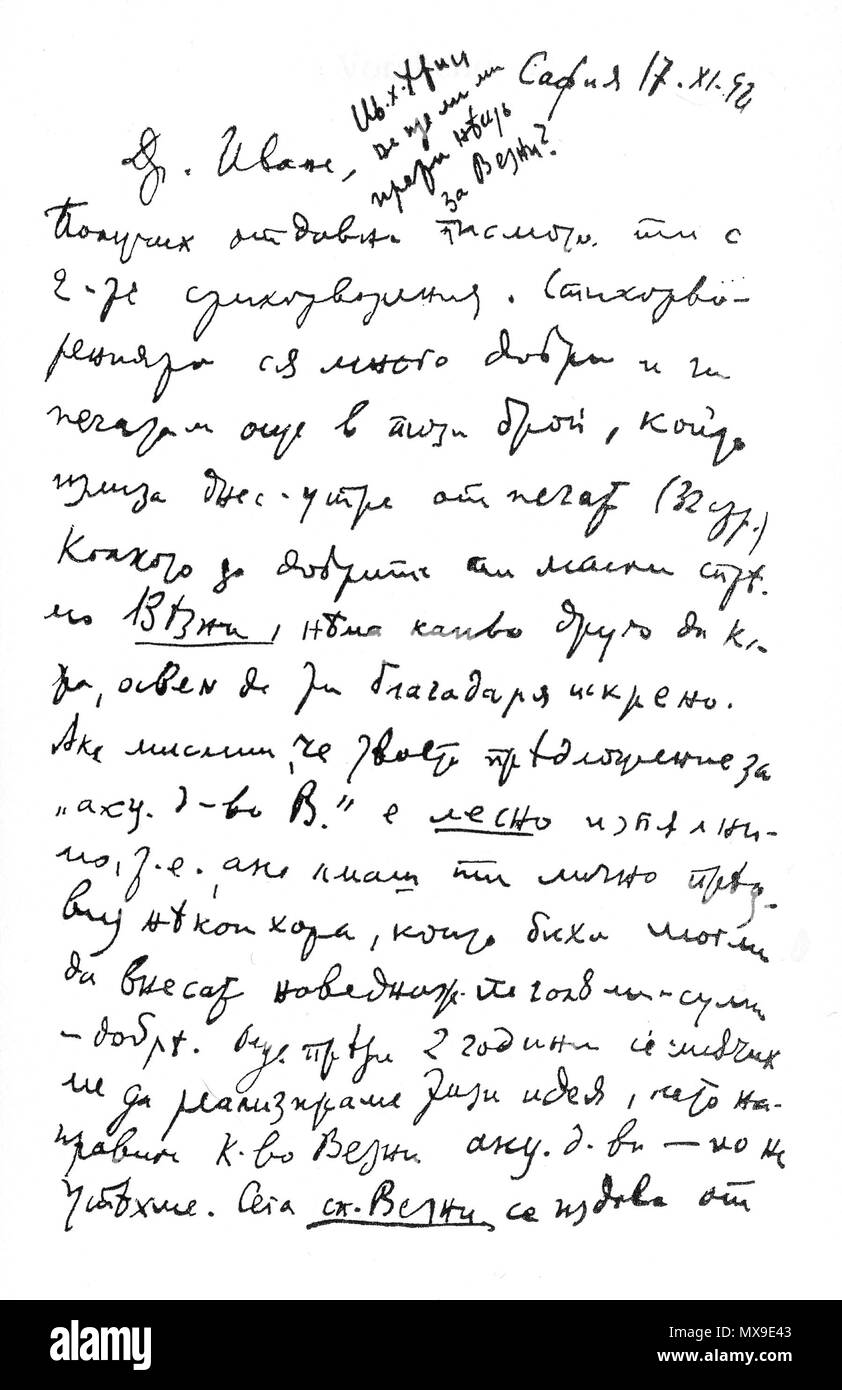 София 17.XI.92
Ив. х. Христ
не ще ли ми
прати нѣщо
за Везни?
Др. Иване,
Получих отдавна писмото ти с
2-те стихотворения. Стихотво-
ренията ся много добри и ги
печатам още в този брой, който
излиза днес-утре от печат (32 стр.)
Колкото до добрите ти мисли спря-
мо Вѣзни, нѣма какво друго да кa-
жа, освен да ти благодаря искрено.
Ако мислиш, че твоето прѣдложение за
„акц. д-во В.“ е лесно изпълни-
мо, т.е., ако имаш ти лично прѣд-
вид нѣкои хора, които биха могли
да внесат наведнаж по-голѣми суми
– добрѣ. Още прѣди 2 години се мѫчих-
ме да реализираме тази идея, като на-
правим К-во Везни акц. д-во — но не
успѣхме. Сега сп. Везни се издава от
alamy
Image ID: MX9E43
www.alamy.com